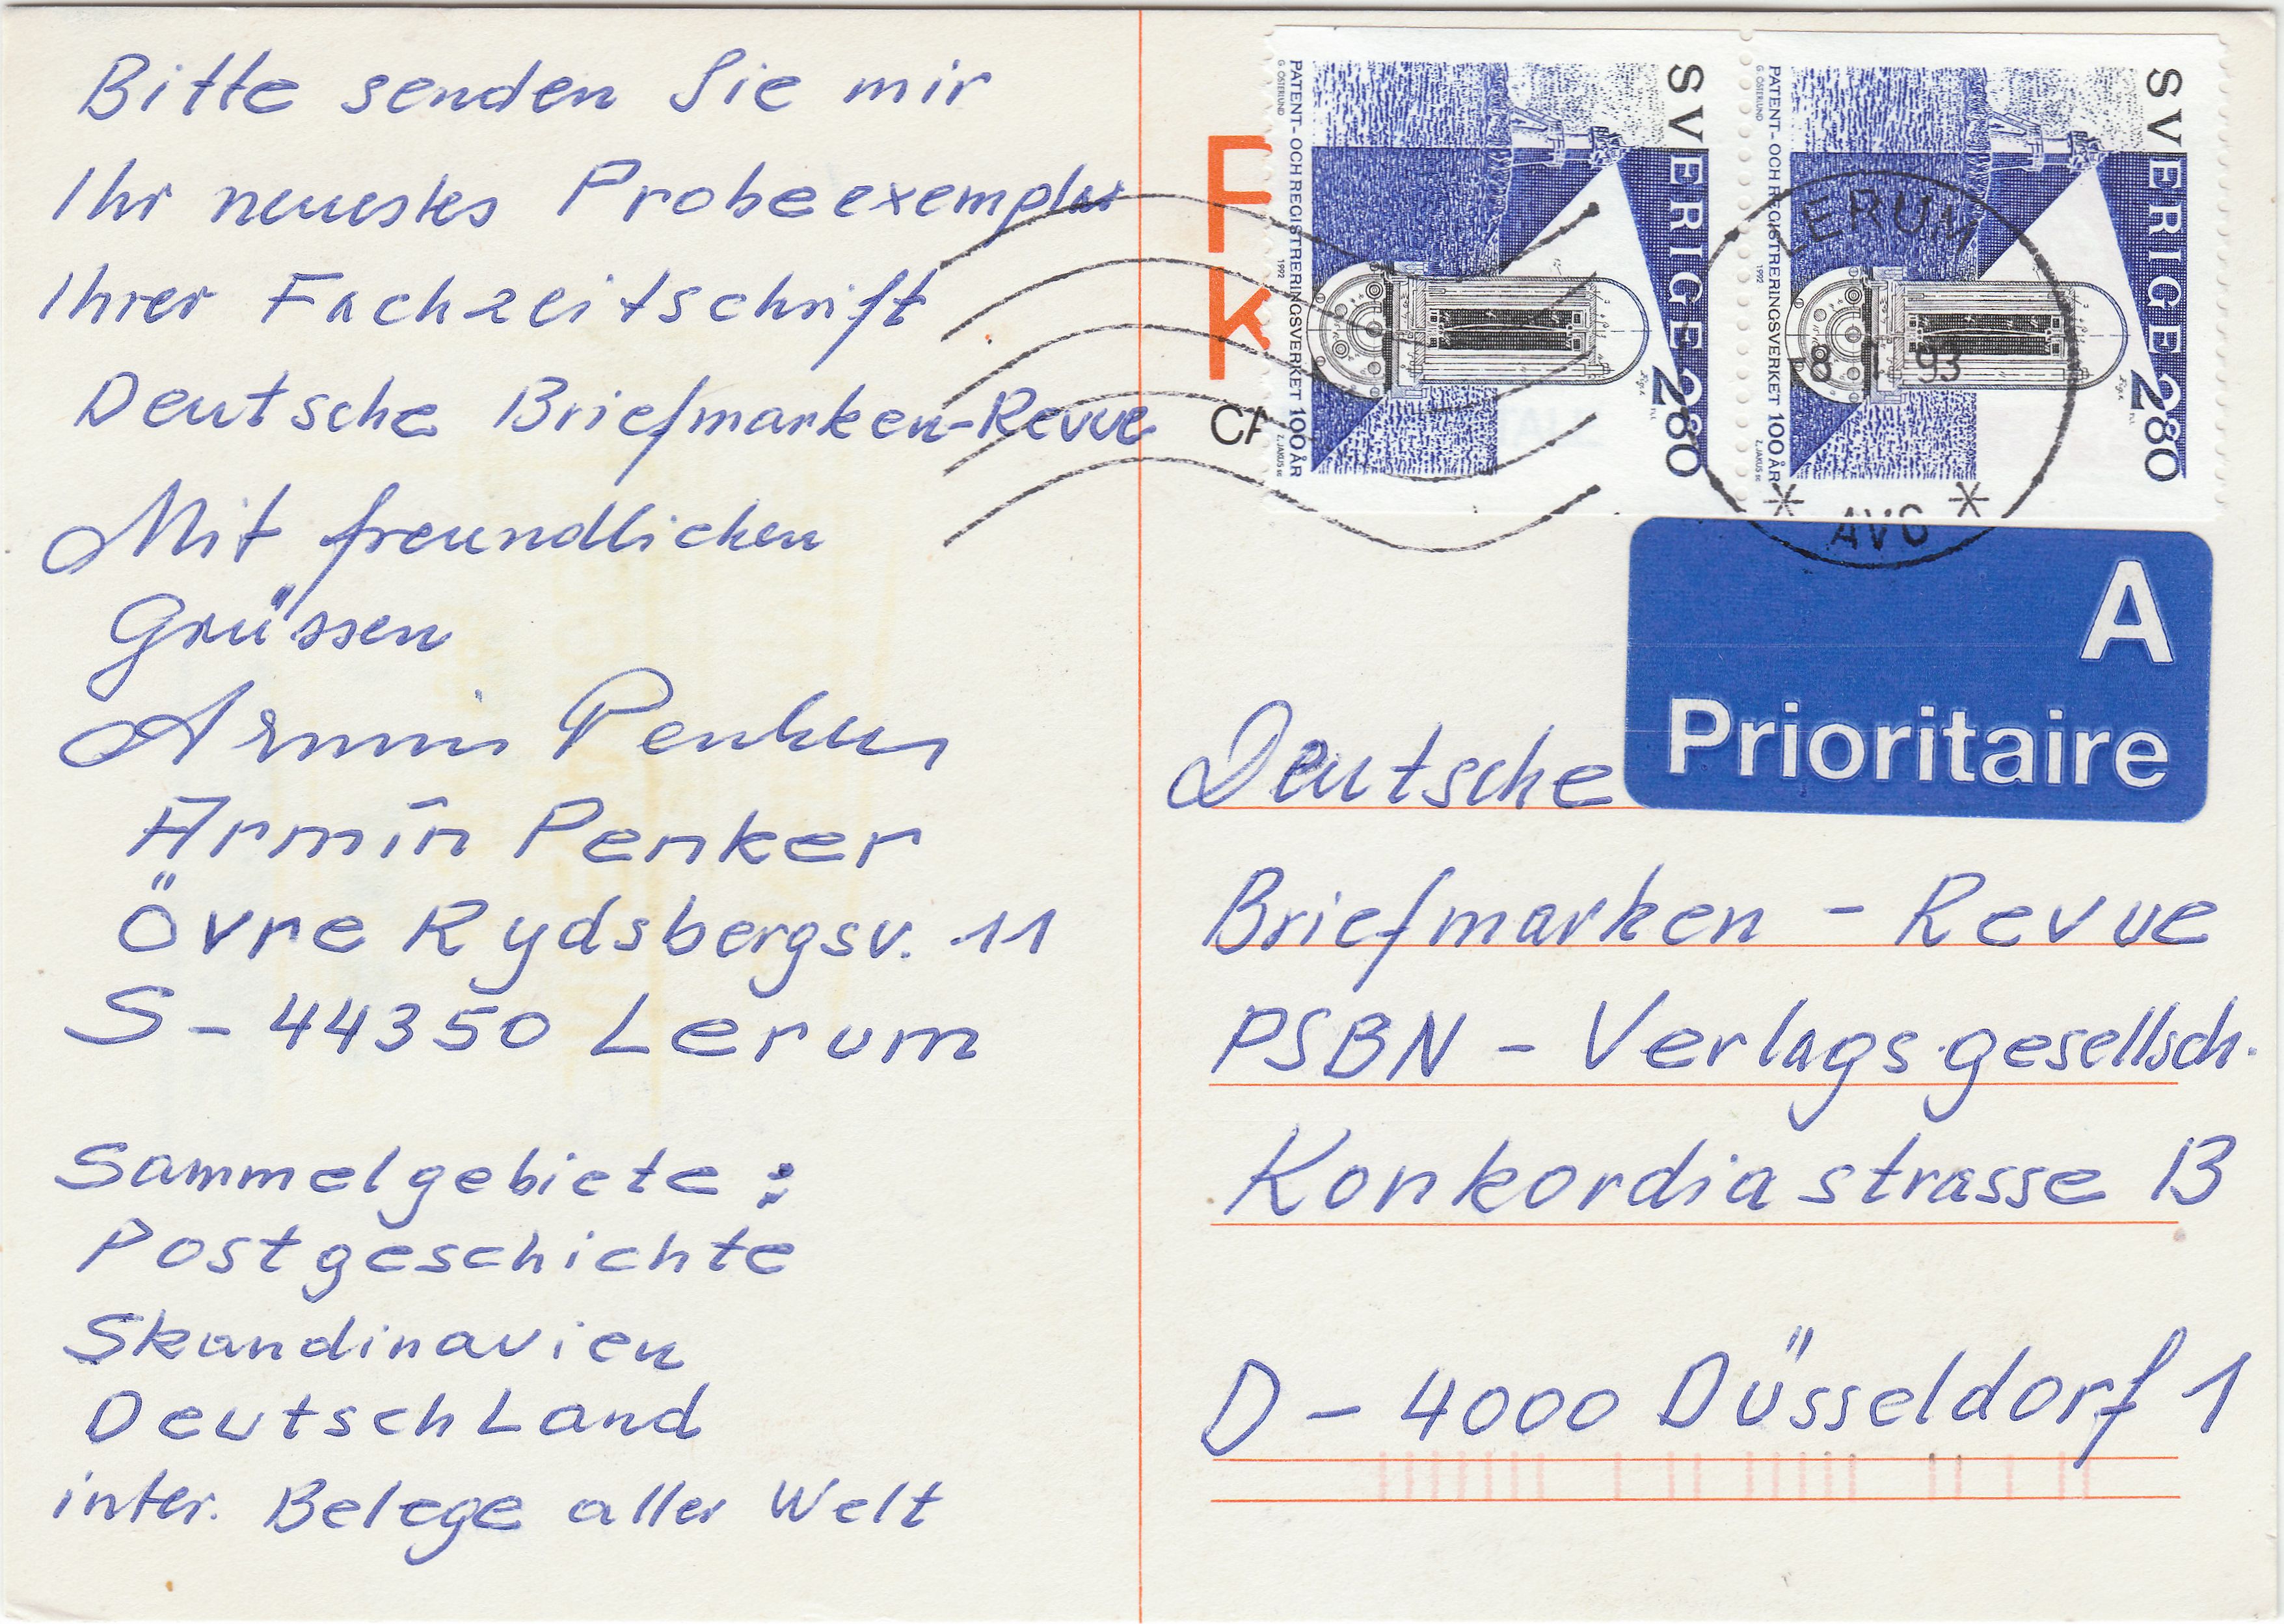 Bitte senden Sie mir
Ihr neuestes Probeexemplar
Ihrer Fachzeitschrift
Deutsche Briefmarken-Revue
Mit freundlichen
Grüssen
Armin Penker
Armin Penker
Övre Rydsbergsv. 11
S-44350 Lerum
Sammelgebiete:
Postgeschichte
Skandinavien
Deutschland
inter. Belege aller Welt
SVERIGE 280
PATENT- OCH REGISTRERINGSVERKET 100 ÅR
G ÖSTERLUND
1992
SVERIGE 280
PATENT- OCH REGISTRERINGSVERKET 100 ÅR
G ÖSTERLUND
1992
LERUM
93
AVG
A
Prioritaire
Deutsche
Briefmarken - Revue
PSBN - Verlagsgesellsch.
Konkordiastrasse 13
D-4000 Düsseldorf 1